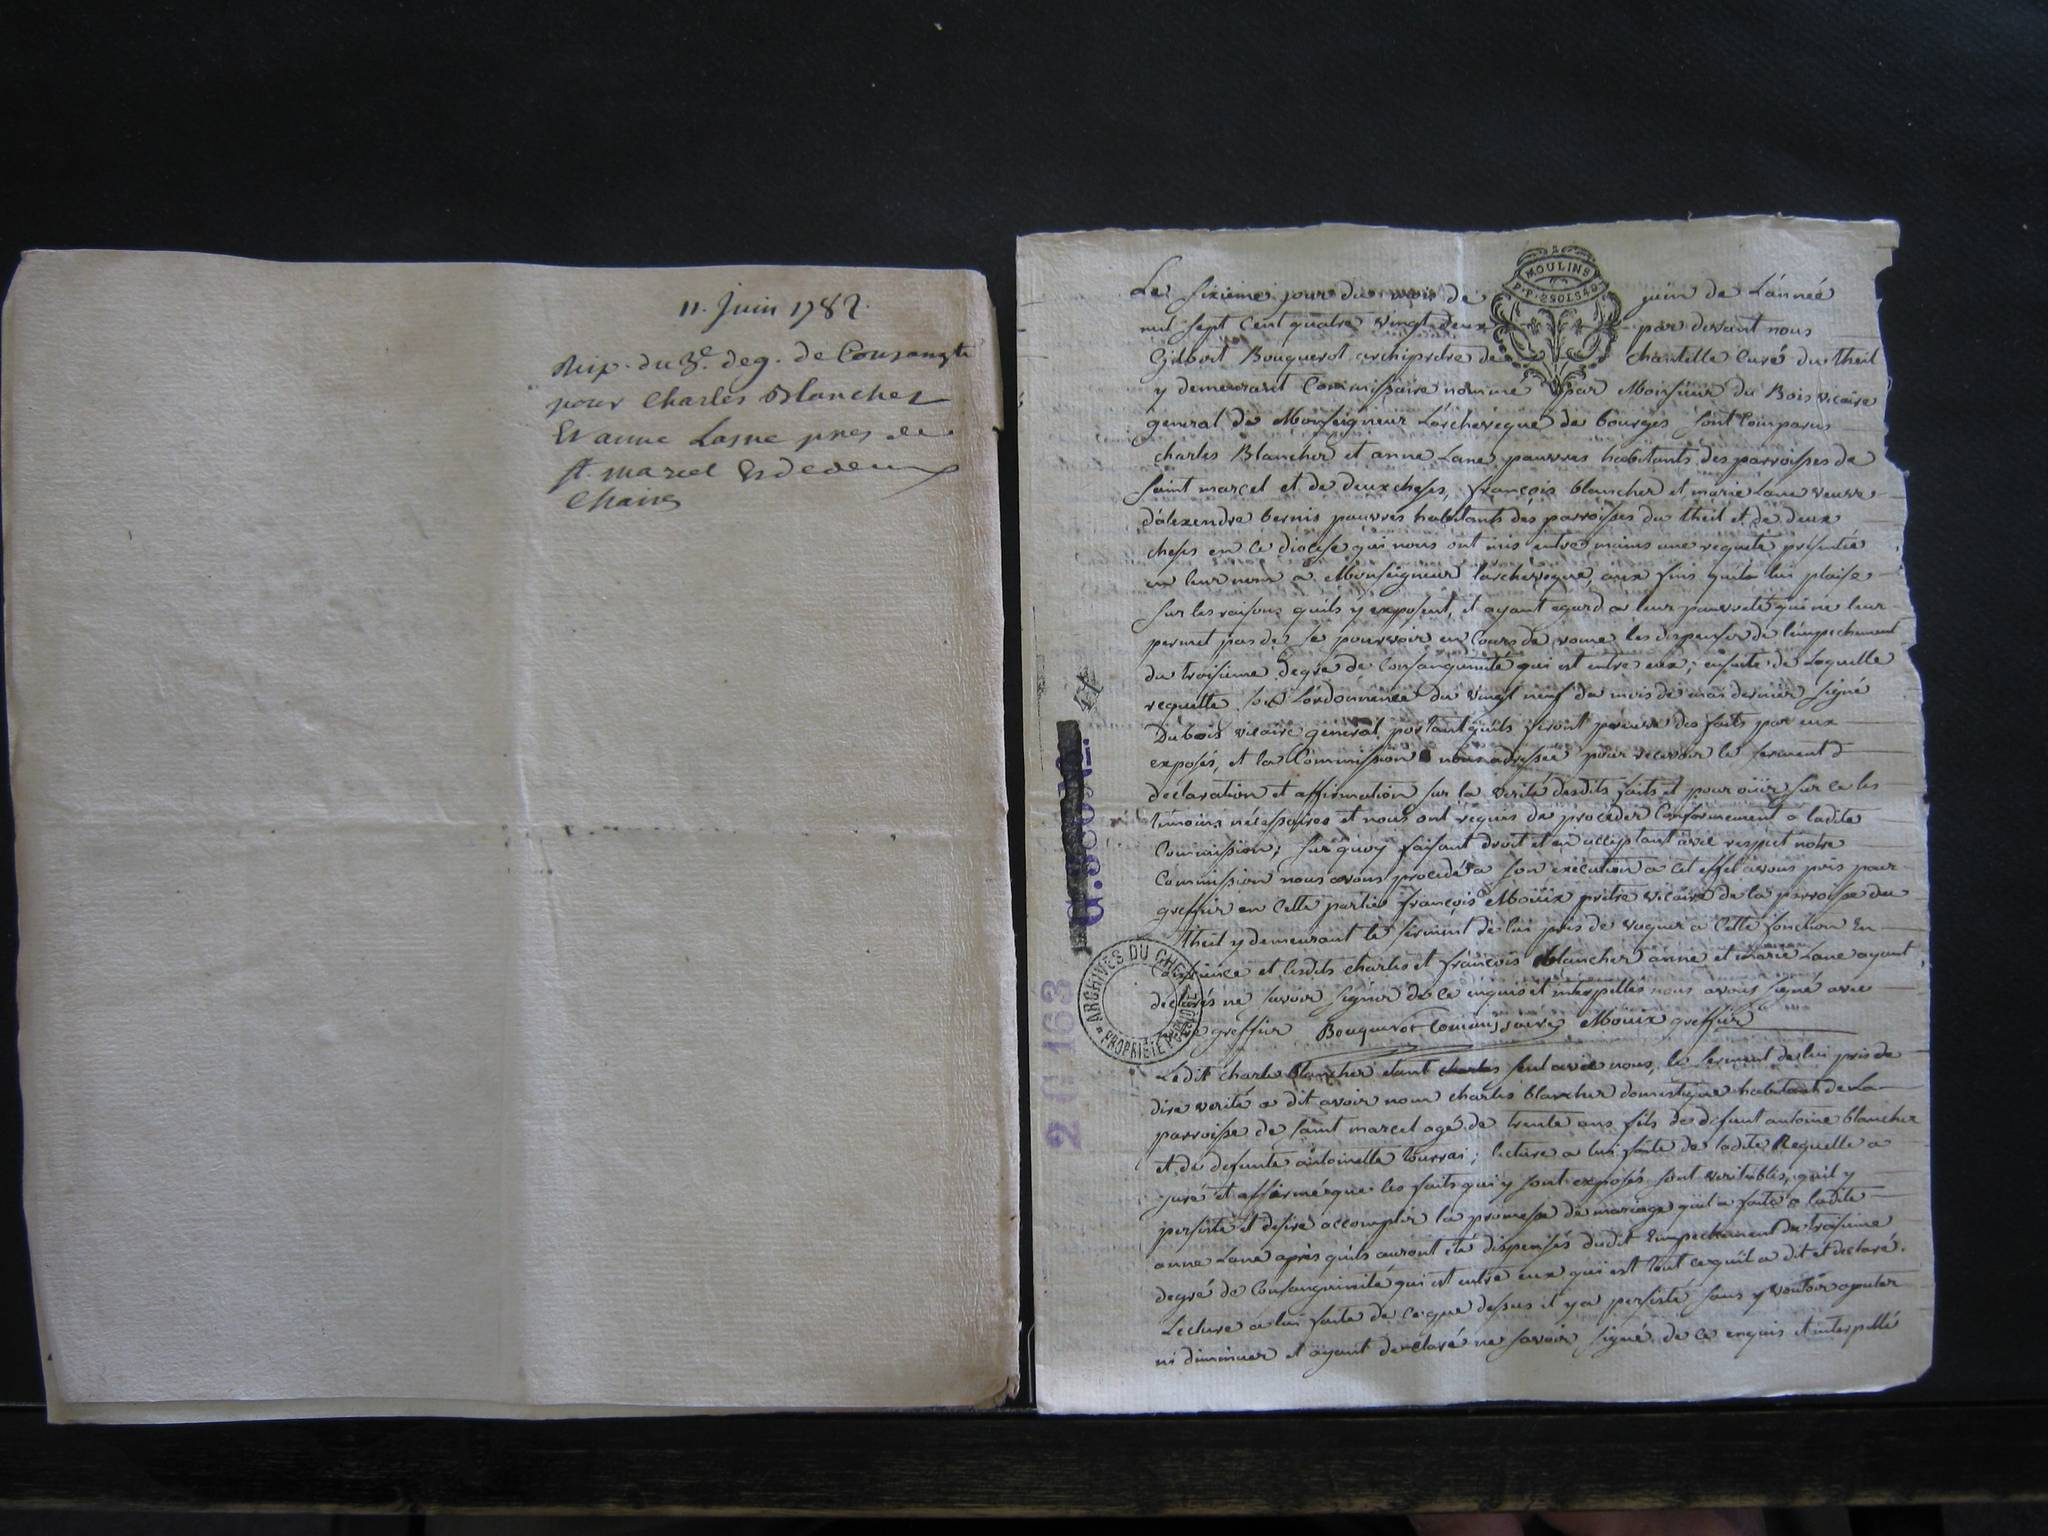 11. Juin 1782.
Disp. du 3e. deg. de Consangte
pour Charles Blancher
Et anne Lasne prses de
st. marcel Et de deux
Chaires
MOULINS
P.P. 2 SOLS 4 D.
Le sixieme jour du mois de juin de L'année
mil sept Cent quatre vingt deux par devant nous
Gilbert Bouquerot archiprêtre de chantelle Curé du theil
y demeurant Commissaire nommé par Monsieur du Bois vicaire
general de Monseigneur L'archevêque de bourges sont Comparus
charles Blancher et anne Lane pauvres habitants des parroisses de
saint marcel et de deux cheses, françois blancher et marie Lane veuve
d'alexendre bernis pauvres habitants des parroisses du theil et de deux
cheses en ce diocese qui nous ont mis entre mains une requete présentée
en leur nom a Monseigneur l'archevêque, aux fins quil lui plaise
sur les raisons quils y exposent, et ayant egard a leur pauvreté qui ne leur
permet pas de se pourvoir en Cours de rome les dispenser de l'empechement
du troisieme Degré de Consanguinité qui est entre eux; ensuite de Laquelle
requette est L'ordonnance du vingt neuf du mois de mai dernier signé
Dubois vicaire general portant quils feront preuve des faits par eux
exposés, et la Commission a nous adressée pour recevoir le serment
declaration et affirmation sur la verité desdits faits et pour ouir sur ce les
temoins nécessaires et nous ont requis de proceder Conformement a ladite
Commission; sur quoy faisant droit et en acceptant avec respect notre
Commission nous avons procedé a son execution a cet effet avons pris pour
greffier en Cette partie françois Mouix prêtre vicaire de la parroisse du
theil y demeurant le serment de lui pris de vaquer a Cette fonction En
Conscience et lesdits charles et françois blancher anne et marie Lane ayant
declarés ne savoir signer de ce enquis et interpellés nous avons signé avec
greffier Bouquerot Commissaire Mouix greffier
Ledit charle blancher etant charles seul avec nous, le serment de lui pris de
dire verité a dit avoir nom charles blancher domestique habitant de La
parroisse de saint marcel agé de trente ans fils de defunt antoine blancher
et de defunte antoinette tourrai; lecture a lui faite de ladite Requette a
juré et affirmé que les faits qui y sont exposés sont veritables, quil y
persiste et desire accomplir la promesse de mariage quil a faite a ladite
anne Lane après quils auront été dispensés dudit Empechement du troisieme
degré de Consanguinité qui est entre eux qui est tout ce quil a dit et declaré.
Lecture a lui faite de ce que dessus il y a persisté sans y vouloir ajouter
ni diminuer et ayant declaré ne savoir signé de ce enquis et interpellé
ARCHIVES DU CHER
PROPRIÉTÉ PUBLIQUE
2 G 163